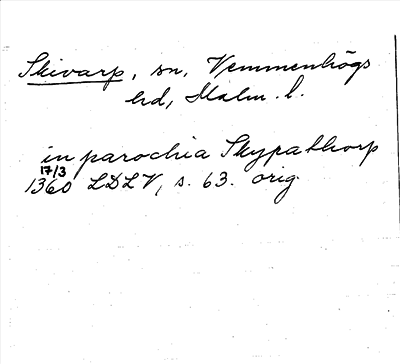 Skivarp, sn, Vemmenhögs
hd, Malm. l.
in parochia Skypathorp
17/3
1360 LDLV, s. 63. orig.